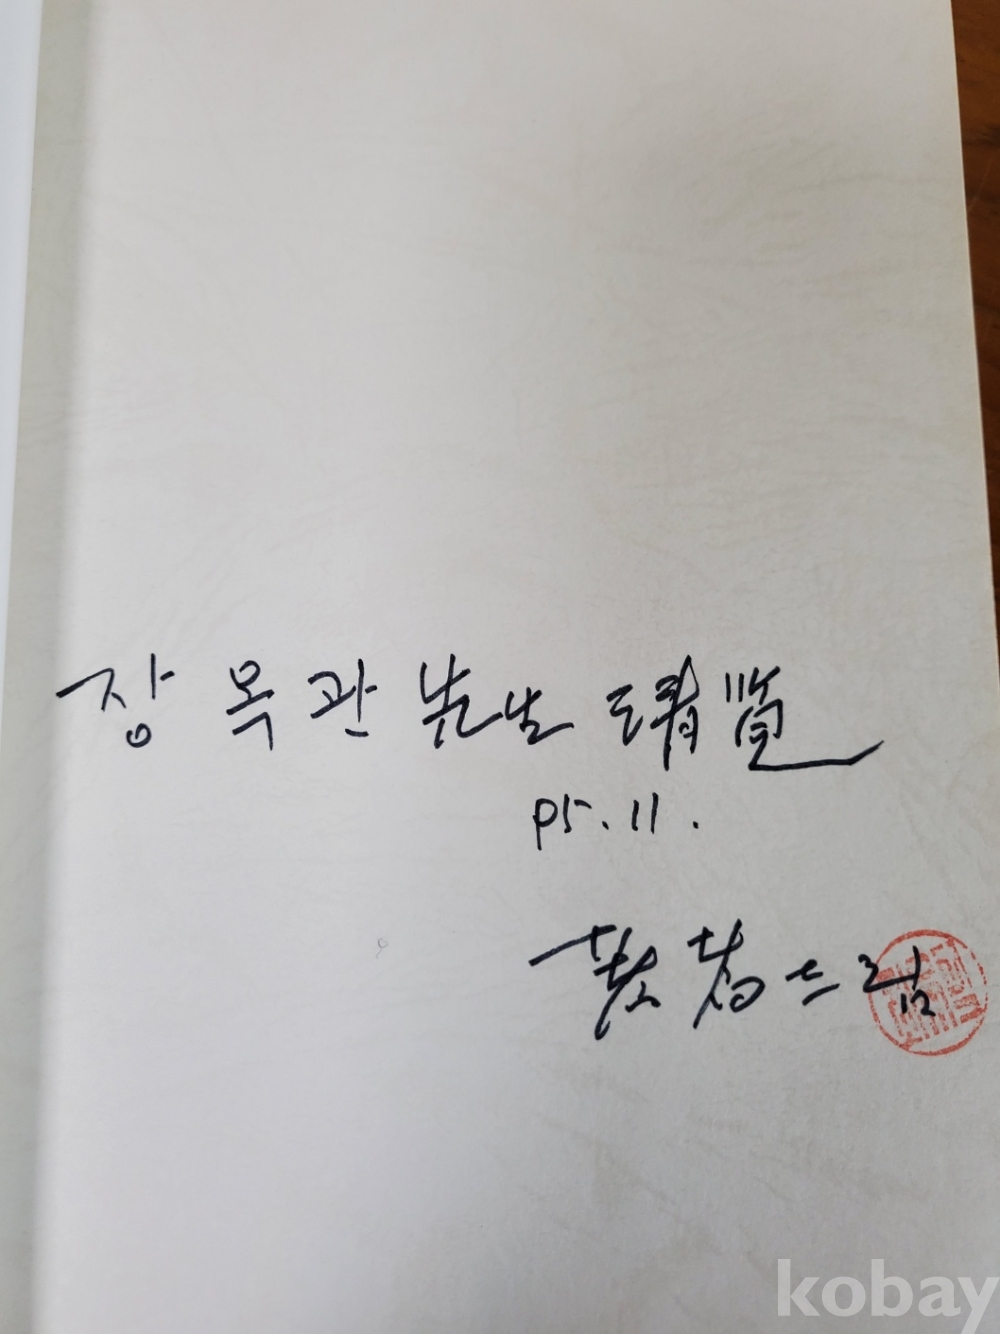 장옥관 先生 清覽
95. 11.
드림
kobay